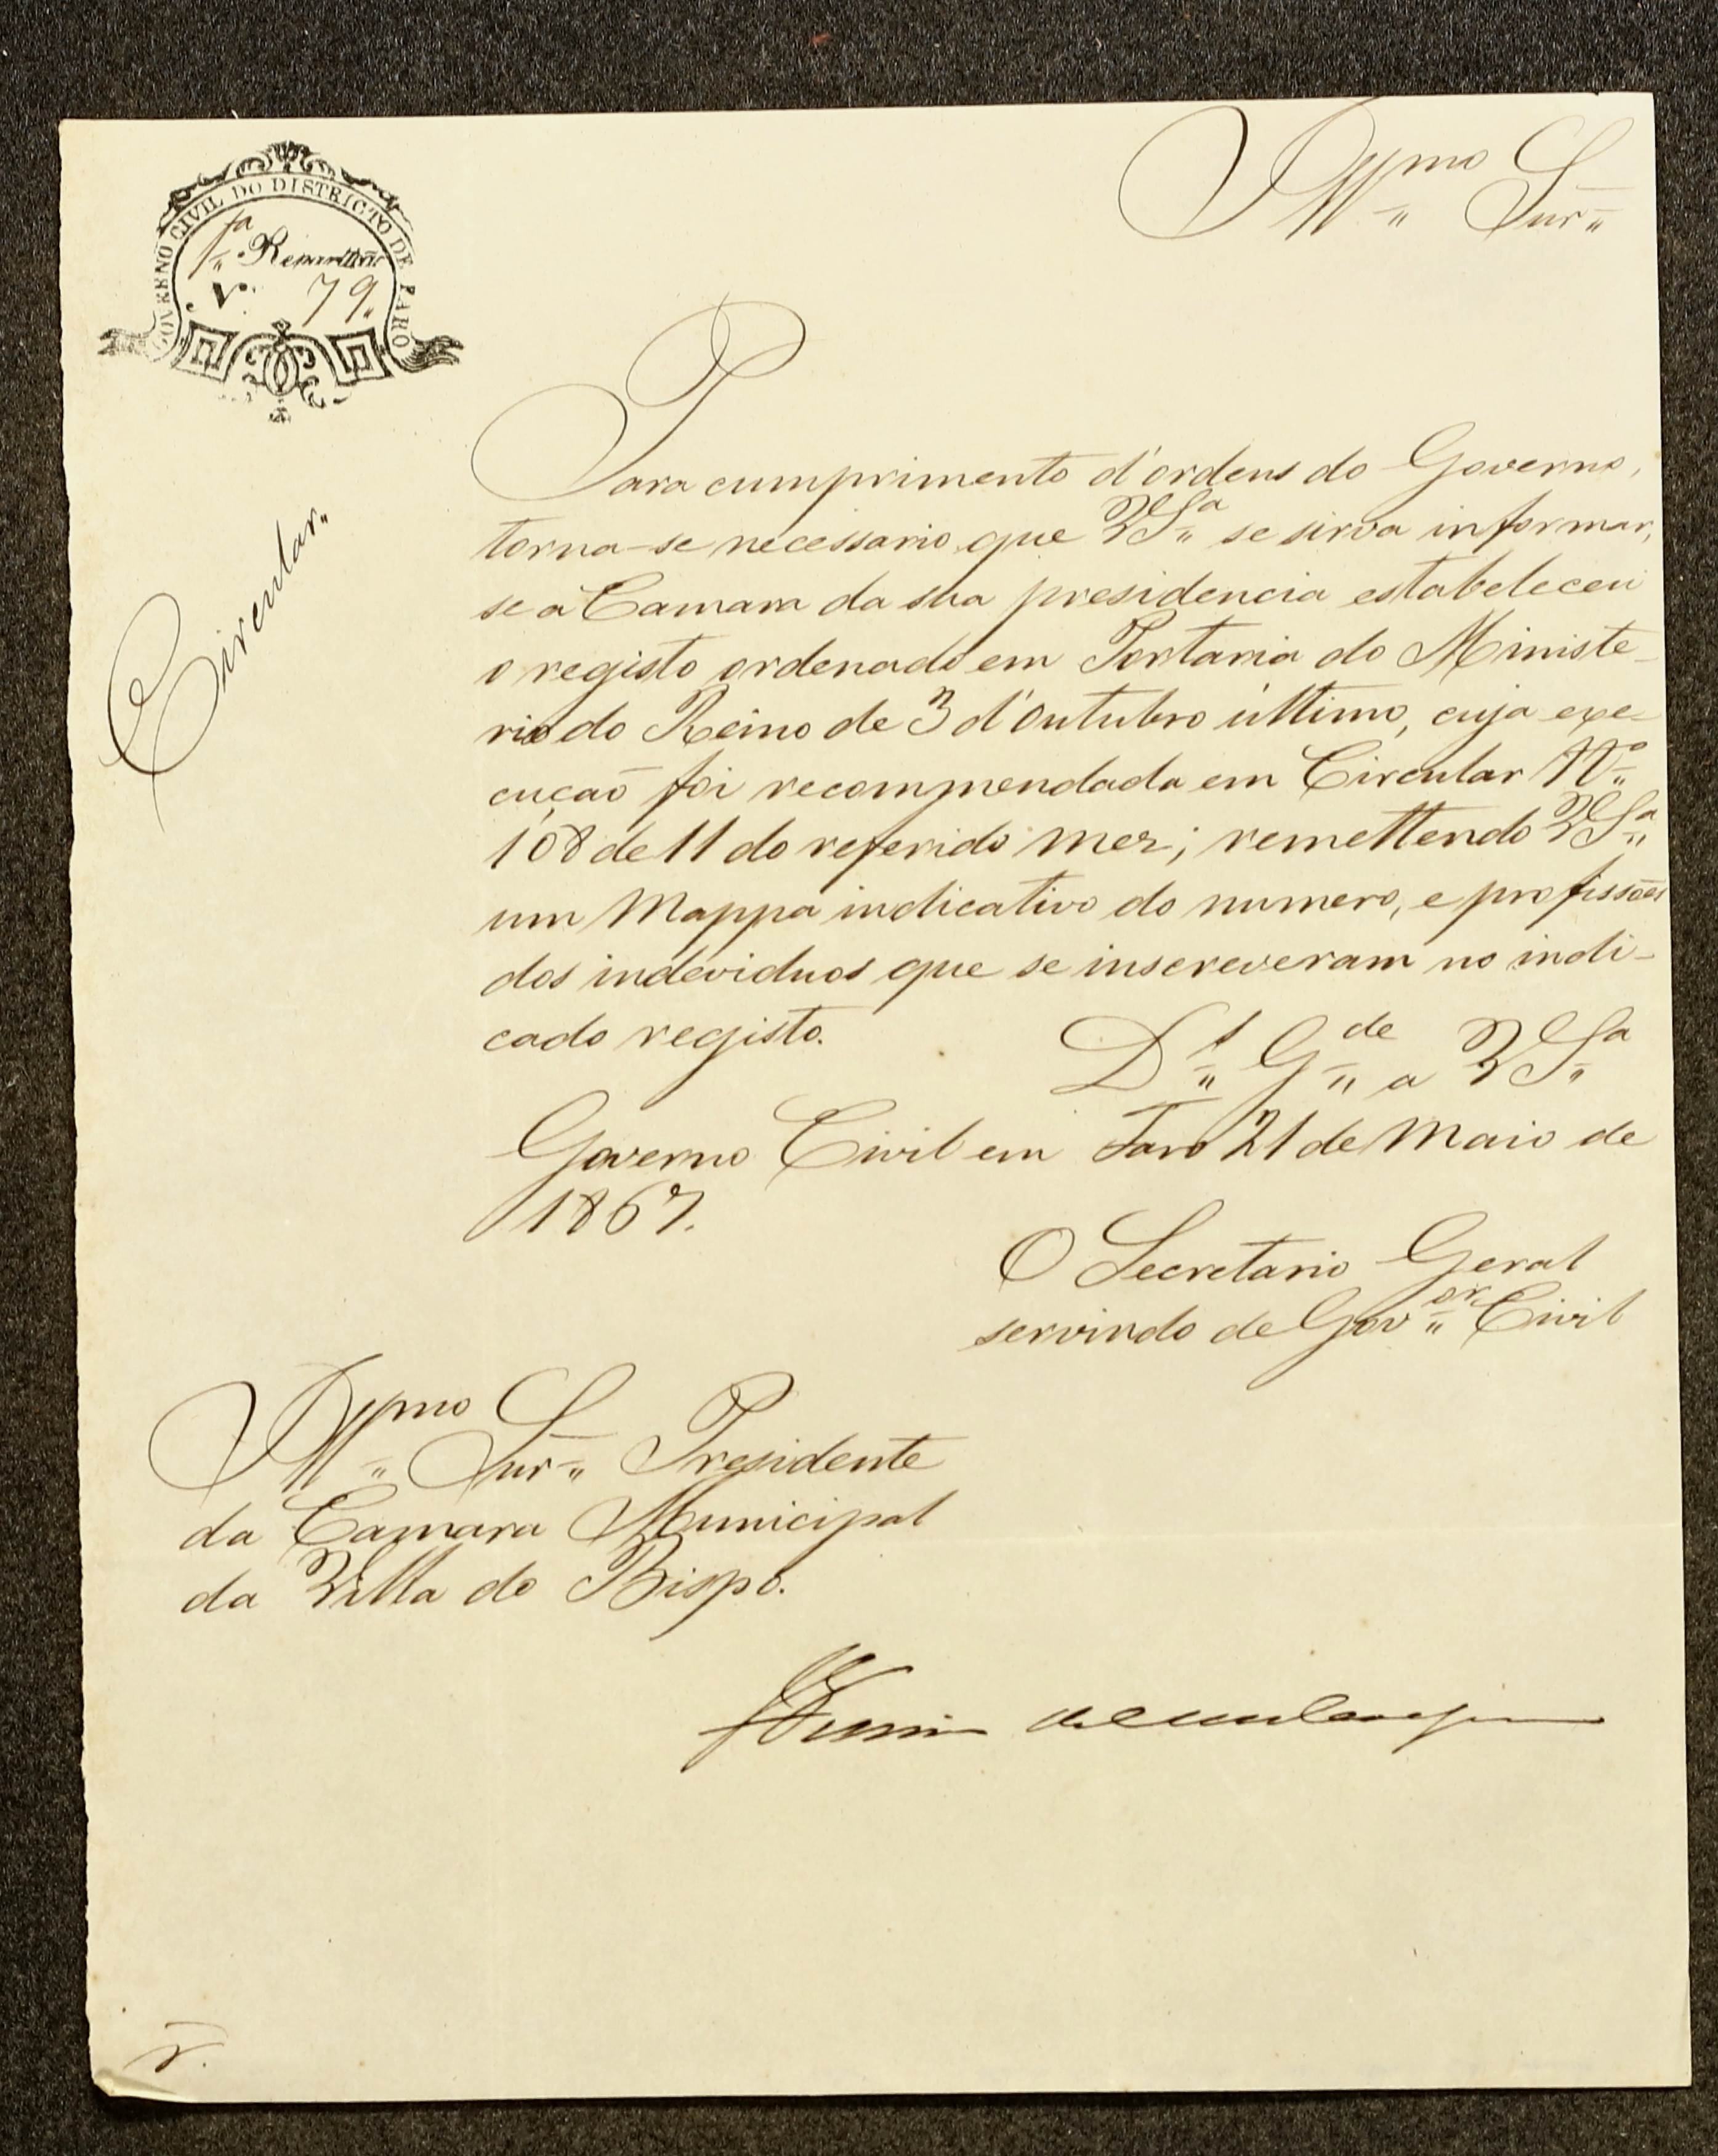 GOVERNO CIVIL DO DISTRICTO DE FARO
1.ª Repartição
N. 79.
Circular.
Illmo Snr.
Para cumprimento d'ordens do Governo,
torna-se necessario que V Sª se sirva informar,
se a Camara da sua presidencia estabeleceu
o registo ordenado em Portaria do Ministe-
rio do Reino de 3 d'Outubro ultimo, cuja exe-
cução foi recommendada em Circular Nº
108 de 11 do referido mez; remettendo V Sª
um Mappa indicativo do numero, e profissões
dos indeviduos que se inscreveram no indi-
cado registo.
Ds Gde a V Sª
Governo Civil em Faro 21 de Maio de
1867.
O Secretario Geral
servindo de Govor Civil
Illmo Snr Presidente
da Camara Municipal
da Villa do Bispo.